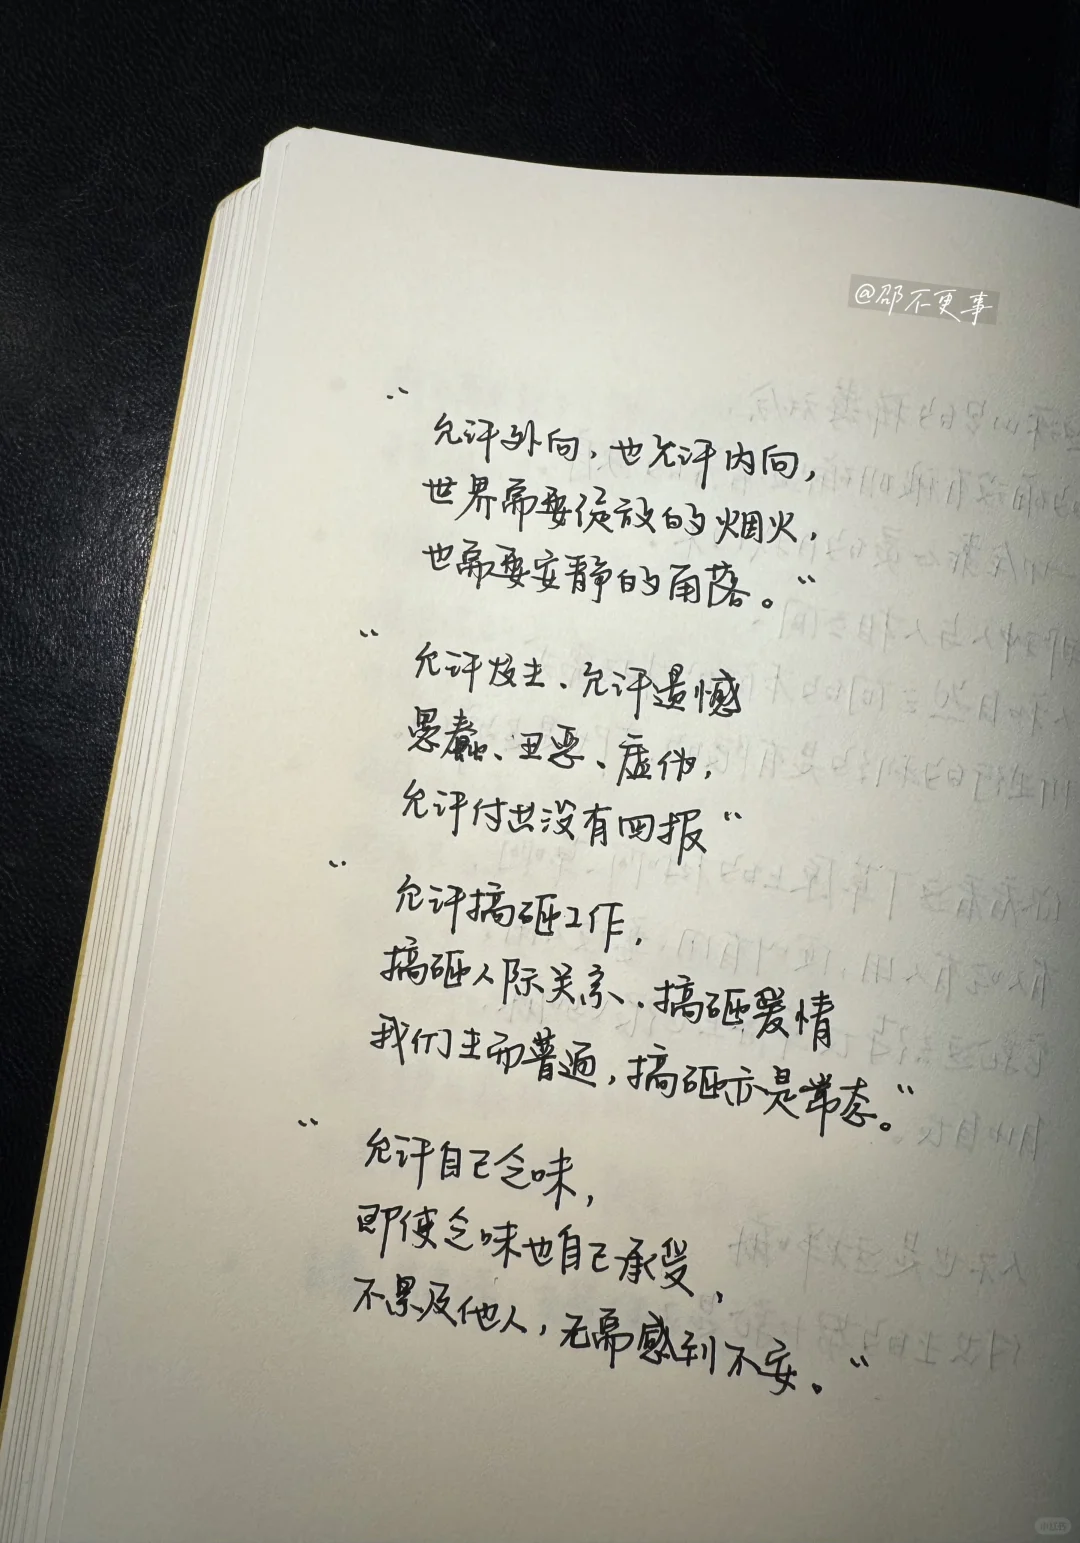 @邵不更事
“
允许外向,也允许内向,
世界需要绽放的烟火,
也需要安静的角落。“
“
允许发生、允许遗憾
愚蠢、丑恶、虚伪,
允许付出没有回报“
“
允许搞砸工作,
搞砸人际关系、搞砸爱情
我们生而普通,搞砸亦是常态。“
“
允许自己乏味,
即使乏味也自己承受,
不累及他人,无需感到不安。“